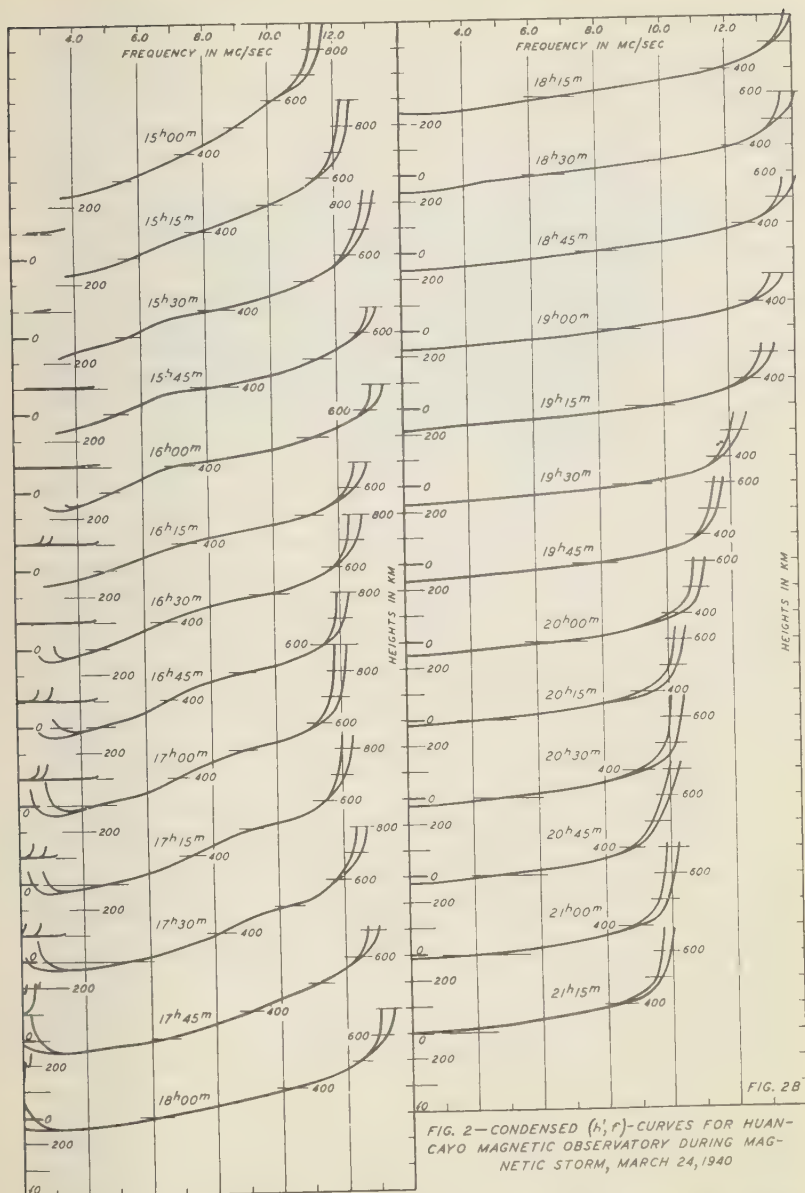 4.0 6.0 8.0 10.0 12.0
FREQUENCY IN MC/SEC
800
600
15ʰ00ᵐ
400
200
800
600
15ʰ15ᵐ
400
0
200
800
600
15ʰ30ᵐ
400
0
200
600
15ʰ45ᵐ
400
0
200
600
16ʰ00ᵐ
400
0
200
600
16ʰ15ᵐ
400
0
200
800
600
16ʰ30ᵐ
400
0
200
800
600
16ʰ45ᵐ
400
0
200
800
600
17ʰ00ᵐ
400
0
200
800
600
17ʰ15ᵐ
400
0
200
800
600
17ʰ30ᵐ
400
0
200
600
17ʰ45ᵐ
400
0
200
600
18ʰ00ᵐ
400
0
200
HEIGHTS IN KM
4.0 6.0 8.0 10.0
FREQUENCY IN MC/SEC
18ʰ15ᵐ
400
200
600
18ʰ30ᵐ
400
0
200
600
18ʰ45ᵐ
400
0
200
19ʰ00ᵐ
400
0
200
19ʰ15ᵐ
400
0
200
19ʰ30ᵐ
400
0
200
600
19ʰ45ᵐ
400
0
200
600
20ʰ00ᵐ
400
0
200
600
20ʰ15ᵐ
400
0
200
600
20ʰ30ᵐ
400
0
200
600
20ʰ45ᵐ
400
0
200
600
21ʰ00ᵐ
400
0
200
600
21ʰ15ᵐ
400
0
200
HEIGHTS IN KM
FIG. 2B
FIG. 2—CONDENSED (h', f)-CURVES FOR HUAN-
CAYO MAGNETIC OBSERVATORY DURING MAG-
NETIC STORM, MARCH 24, 1940